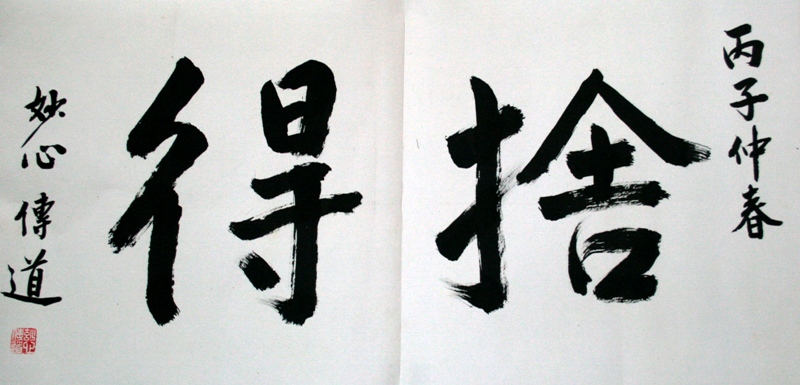 丙子仲春
捨得
妙心傳道